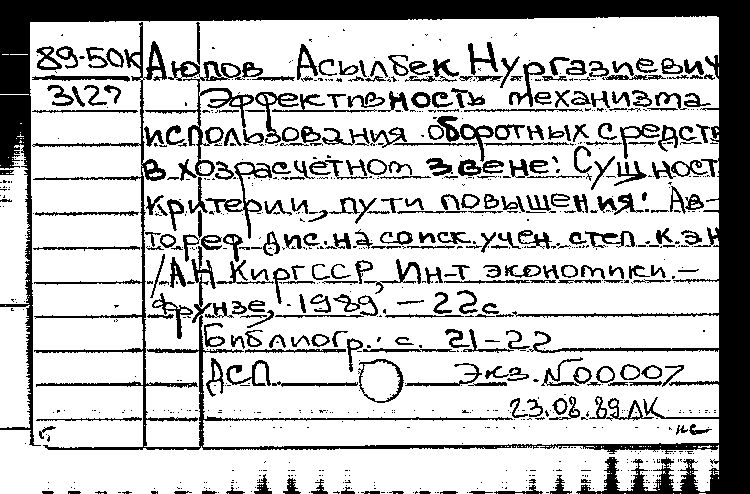 89-50К Аюпов Асылбек Нургазиевич
3127 Эффективность механизма
использования оборотных средств
в хозрасчётном звене: Сущност
критерии, пути повышения: Ав-
тореф. дис. на соиск. учен. степ. к.э.н
/АН КиргССР, Ин-т экономики. –
Фрунзе, 1989. – 22с.
Библиогр.: с. 21-22
ДСП Экз. N00007
23.08.89 ЛК